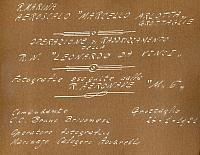 R. MARINA
AEROSCALO "MARCELLO ARLOTTA"
GROTTAGLIE
OPERAZIONE DI RADDRIZZAMENTO
DELLA
R. N. "LEONARDO DA VINCI"
Fotografie eseguite dalla
R. AERONAVE "M. 6"
Comandante
C.C. Bruno Brivonesi
Grottaglie
Operatore fotografico
Marinaio Calogero